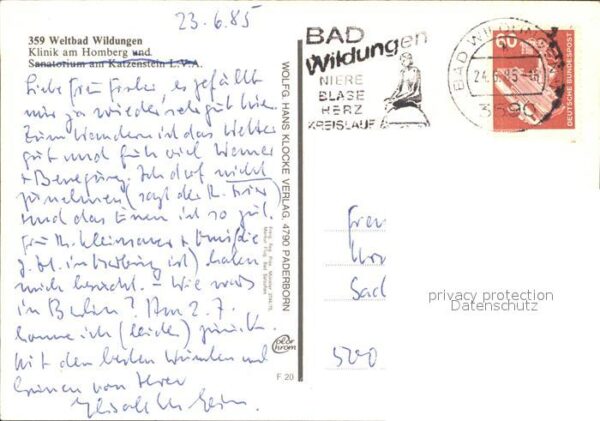 23.6.85
359 Weltbad Wildungen
Klinik am Homberg und
Sanatorium am Katzenstein L.V.A.
Liebe Frau es gefällt
mir ja wieder sehr gut hier.
Zum Wandern ist das Wetter
gut und früh viel Wasser
+ Bewegung. Ich darf nicht
zunehmen (sagt der
und das Essen ist so gut.
Frau +
z. Zt. in ist) haben
mich besucht. – Wie wars
in Berlin? Am 2.7.
komme ich (leider) zurück.
Mit den besten Wünschen und
Grüssen von Ihrer
Elisabeth
WOLFG. HANS KLOCKE VERLAG, 4790 PADERBORN
color
chrom
F 20
BAD
Wildungen
NIERE
BLASE
HERZ
KREISLAUF
BAD WILDUNGEN
3590
60
DEUTSCHE BUNDESPOST
privacy protection
Datenschutz